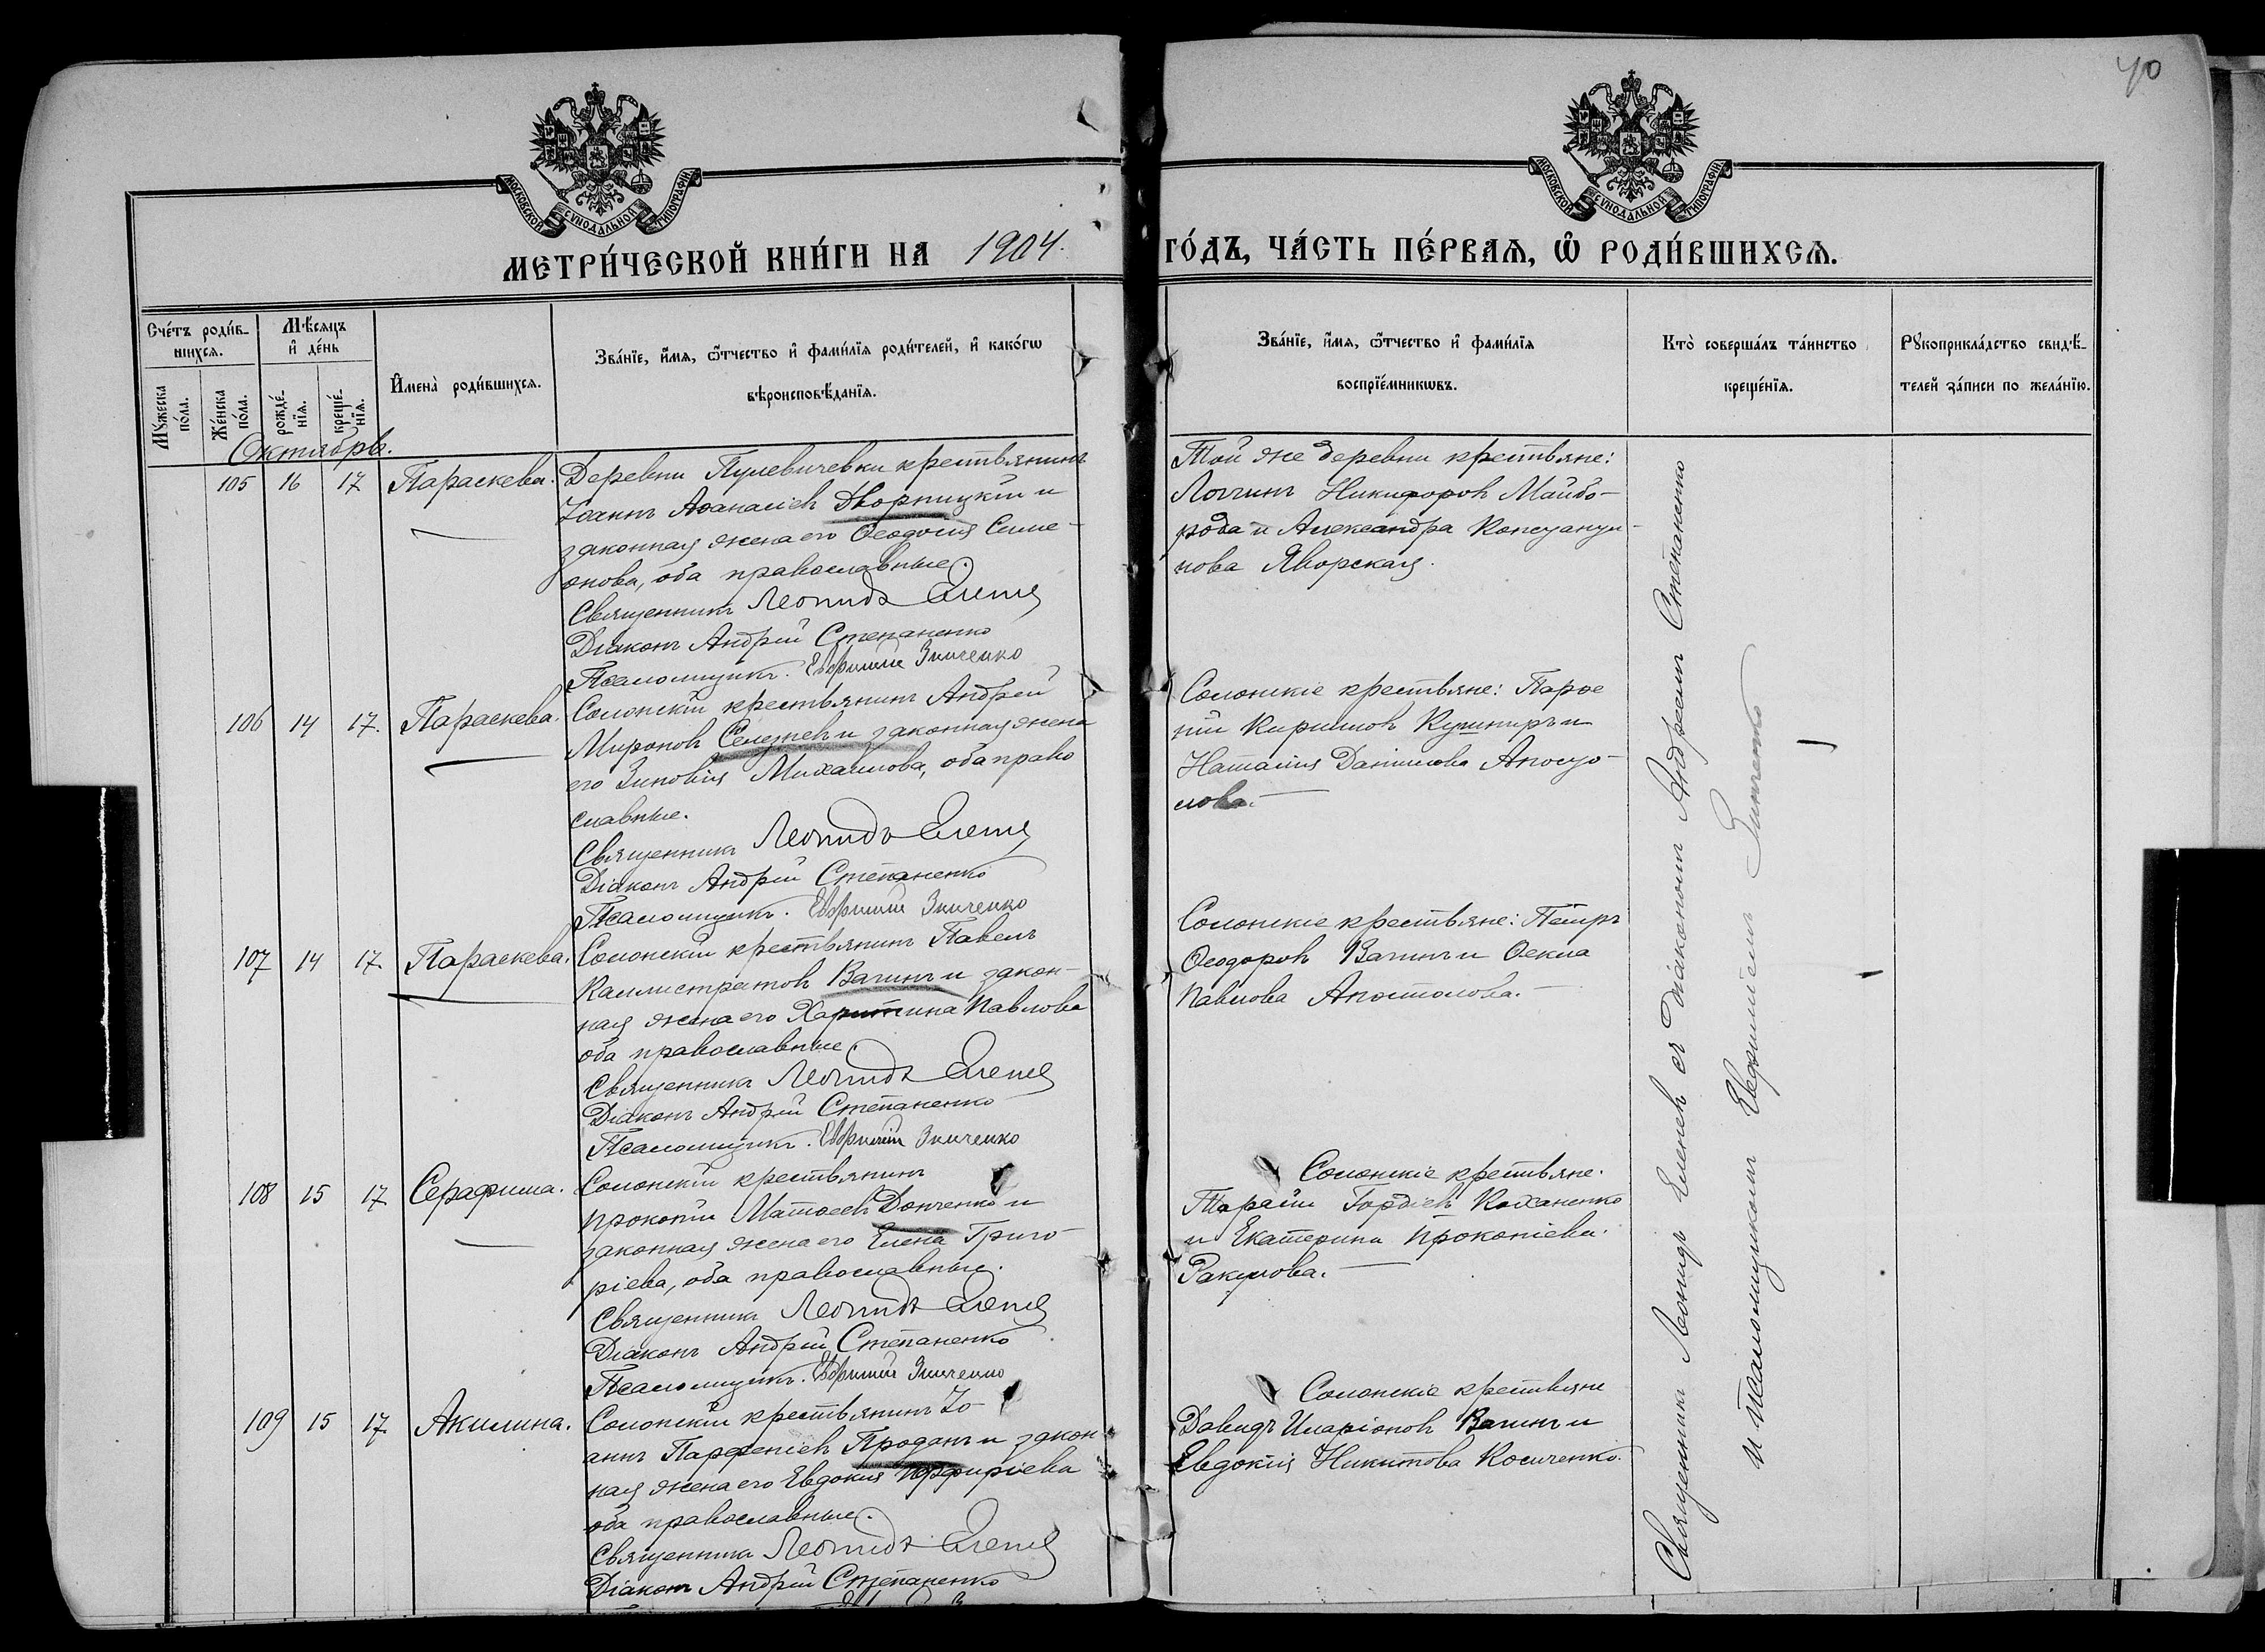 40
МОСКОВСКОЙ СѴНОДАЛЬНОЙ ТИПОГРАФІИ
МОСКОВСКОЙ СѴНОДАЛЬНОЙ ТИПОГРАФІИ
МЕТРИ́ЧЕСКОЙ КНИ́ГИ НА 1904. ГО́ДЪ, ЧА́СТЬ ПЕ́РВАѦ, Ѡ҆ РОДИ́ВШИХСѦ.
Сче́тъ роди́в-
шихсѧ.
Мꙋ́жеска по́ла.
Же́нска по́ла.
Мѣ́сѧцъ и҆ де́нь
рожде́-нїѧ.
креще́-нїѧ.
И҆мена̀ роди́вшихсѧ.
Зва́нїе, и҆́мѧ, ѻ҆́тчество и҆ фами́лїѧ роди́телей, и҆ како́гѡ
вѣроисповѣ́данїѧ.
Зва́нїе, и҆́мѧ, ѻ҆́тчество и҆ фами́лїѧ
воспрїе́мникѡвъ.
Кто̀ соверша́лъ та́инство
креще́нїѧ.
Рꙋкоприкла́дство свидѣ́-
телей за́писи по жела́нїю.
Октябрь.
105 16 17 Параскева.
Деревни Пулевичевки крестьянинъ
Іоаннъ Аѳанасіевъ Дворницкій и
законная жена его Ѳеодосія Симе-
онова, оба православные.
Священникъ Леонидъ
Діаконъ Андрей Степаненко
Псаломщикъ. Евфимій Зинченко
Той же деревни крестьяне:
Логгинъ Никифоровъ Майбо-
рода и Александра
нова Яворская.
106 14 17. Параскева.
Солонскій крестьянинъ Андрей
Мироновъ Селезневъ и законная жена
его Зиновія Михаилова, оба право
славные.
Священникъ Леонидъ
Діаконъ Андрей Степаненко
Псаломщикъ. Евфимій Зинченко
Солонскіе крестьяне: Парѳе
ній Кириловъ Кушниръ и
Наталія Даніилова Апосто-
лова.
107 14 17. Параскева.
Солонскій крестьянинъ Павелъ
Каллистратовъ Вагинъ и закон-
ная жена его Харитина Павлова
оба православные.
Священникъ Леонидъ
Діаконъ Андрей Степаненко
Псаломщикъ. Евфимій Зинченко
Солонскіе крестьяне: Петръ
Ѳеодоровъ Вагинъ и Ѳекла
Павлова Апостолова.
108 15 17. Серафима.
Солонскій крестьянинъ
Прокопій Матѳеевъ Донченко и
законная жена его Елена Григо-
ріева, оба православные.
Священникъ Леонидъ
Діаконъ Андрей Степаненко
Псаломщикъ. Евфимій Зинченко
Солонскіе крестьяне.
Тарасій Гордіевъ Коханенко
и Екатерина Прокопіева.
Ракулова.
109 15 17. Акилина.
Солонскій крестьянинъ Іо-
аннъ Парфеніевъ Проданъ и закон
ная жена его Евдокія Порфиріева
оба православные.
Священникъ Леонидъ
Діаконъ Андрей Степаненко
Солонскіе крестьяне
Давидъ Иларіоновъ Вагинъ и
Евдокія Никитова Косиченко.
Священникъ Леонидъ Еленевъ съ діакономъ Андреемъ Степаненко
и псаломщикомъ Евфиміемъ Зинченко